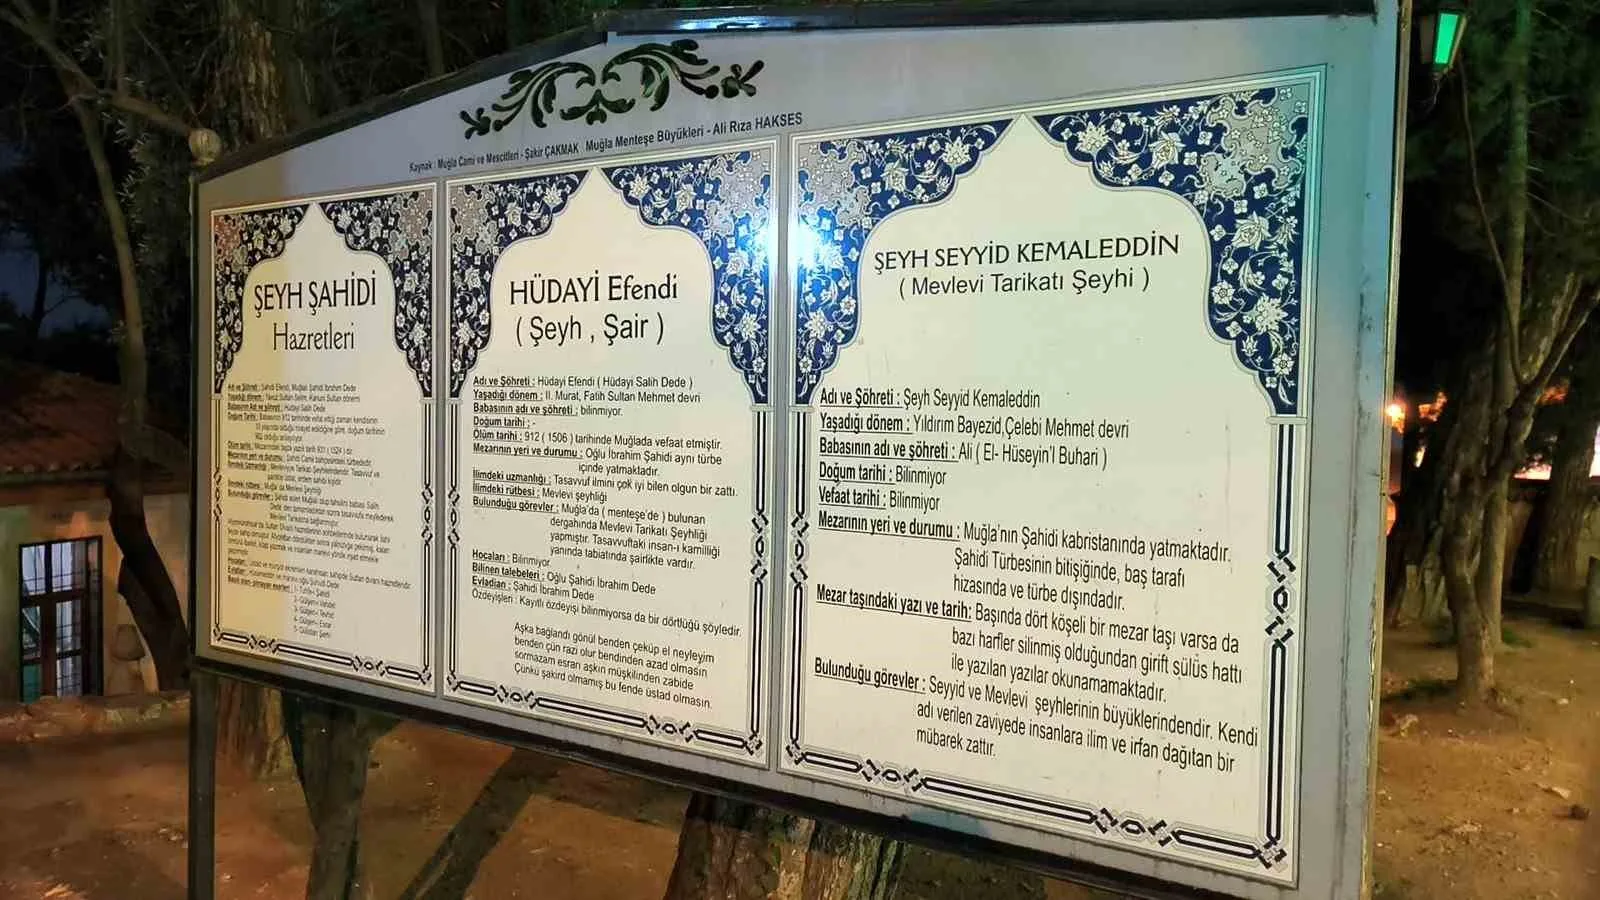 Kaynak : Muğla Cami ve Mescitleri - Şakir ÇAKMAK Muğla Menteşe Büyükleri - Ali Rıza HAKSES
ŞEYH ŞAHİDİ
Hazretleri
Adı ve Şöhreti : Şahidi Efendi, Muğlalı Şahidi İbrahim Dede
Yaşadığı dönem : Yavuz Sultan Selim, Kanuni Sultan dönemi
Babasının Adı ve şöhreti : Hüdayi Salih Dede
Doğum Tarihi : Babasının 912 tarihinde vefat ettiği zaman kendisinin
10 yaşında olduğu rivayet edildiğine göre, doğum tarihinin
902 olduğu anlaşılıyor.
Ölüm tarihi : Mezarından taşta yazılı tarih 931 ( 1524 ) dir.
Mezarının yeri ve durumu : Şahidi Camii bahçesindeki türbededir.
İlimdeki uzmanlığı : Mevleviyye Tarikatı Şeyhlerindendir. Tasavvuf ve
şairlikte üstat, erdem sahibi kişidir.
İlimdeki rütbesi : Muğla' da Mevlevi Şeyhliği
Bulunduğu görevler :
Mevlevi Tarikatına bağlanmıştır.
Hocaları :
Evlatları :
1- Tuhfe-i Şahidi
2- Gülşen-i Vahdet
3- Gülşen-i Tevhid
4- Gülşen-i Esrar
5- Gülistan Şerhi
HÜDAYİ Efendi
( Şeyh , Şair )
Adı ve Şöhreti : Hüdayi Efendi ( Hüdayi Salih Dede )
Yaşadığı dönem : II. Murat, Fatih Sultan Mehmet devri
Babasının adı ve şöhreti : bilinmiyor.
Doğum tarihi : -
Ölüm tarihi : 912 ( 1506 ) tarihinde Muğlada vefaat etmiştir.
Mezarının yeri ve durumu : Oğlu İbrahim Şahidi aynı türbe
içinde yatmaktadır.
İlimdeki uzmanlığı : Tasavvuf ilmini çok iyi bilen olgun bir zattı.
İlimdeki rütbesi : Mevlevi şeyhliği
Bulunduğu görevler : Muğla'da ( menteşe'de ) bulunan
dergahında Mevlevi Tarikatı Şeyhliği
yapmıştır. Tasavvuftaki insan-ı kamilliği
yanında tabiatında şairlikte vardır.
Hocaları : Bilinmiyor
Bilinen talebeleri : Oğlu Şahidi İbrahim Dede
Evladları : Şahidi İbrahim Dede
Özdeyişleri : Kayıtlı özdeyişi bilinmiyorsa da bir dörtlüğü şöyledir.
Aşka bağlandı gönül benden çeküp el neyleyim
benden çün razı olur bendinden azad olmasın
sormazam esrarı aşkın müşkilinden zabide
Çünkü şakird olmamış bu fende üstad olmasın.
ŞEYH SEYYİD KEMALEDDİN
( Mevlevi Tarikatı Şeyhi )
Adı ve Şöhreti : Şeyh Seyyid Kemaleddin
Yaşadığı dönem : Yıldırım Bayezid,Çelebi Mehmet devri
Babasının adı ve şöhreti : Ali ( El- Hüseyin'l Buhari )
Doğum tarihi : Bilinmiyor
Vefaat tarihi : Bilinmiyor
Mezarının yeri ve durumu : Muğla'nın Şahidi kabristanında yatmaktadır.
Şahidi Türbesinin bitişiğinde, baş tarafı
hizasında ve türbe dışındadır.
Mezar taşındaki yazı ve tarih: Başında dört köşeli bir mezar taşı varsa da
bazı harfler silinmiş olduğundan girift sülüs hattı
ile yazılan yazılar okunamamaktadır.
Bulunduğu görevler : Seyyid ve Mevlevi şeyhlerinin büyüklerindendir. Kendi
adı verilen zaviyede insanlara ilim ve irfan dağıtan bir
mübarek zattır.